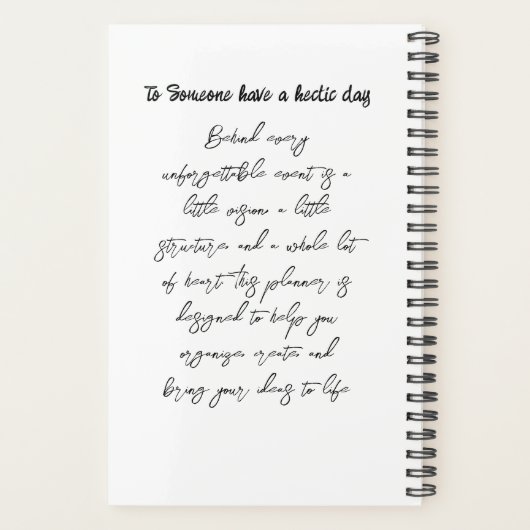 To Someone have a hectic day
Behind every
unforgettable event is a
little vision, a little
structure, and a whole lot
of heart. This planner is
designed to help you
organize, create, and
bring your ideas to life